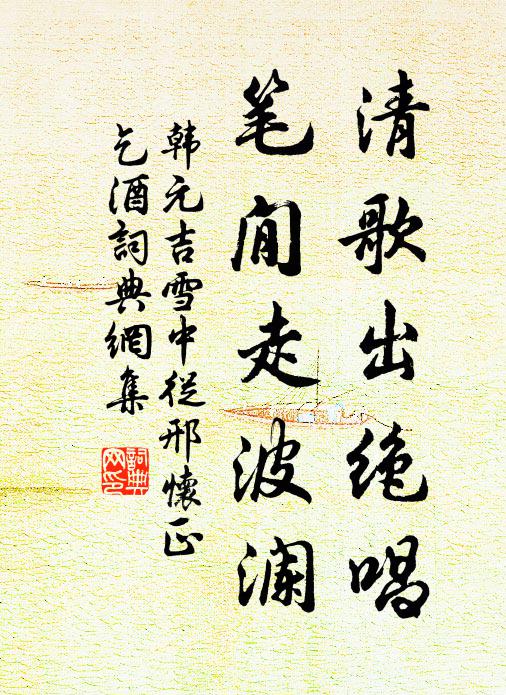 清歌出绝唱
笔间走波澜
韩元吉雪中従邢懐正
乞酒詞典網集
詞典
网印